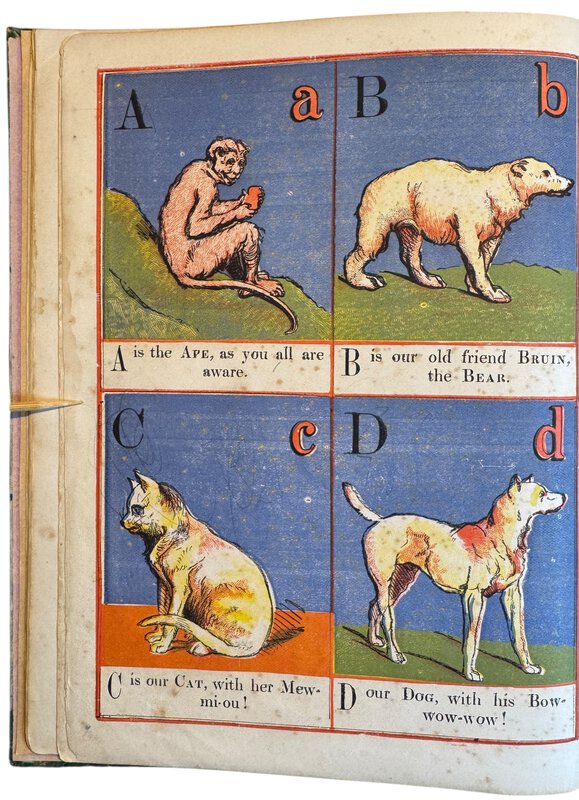 A a
A is the APE, as you all are
aware.
B b
B is our old friend BRUIN,
the BEAR.
C c
C is our CAT, with her Mew-
mi-ou!
D d
D our DOG, with his Bow-
wow-wow!